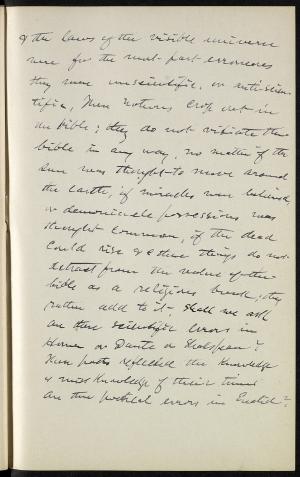 & the laws of the visible universe
were for the most part erroneous
they were unscientific, or anti-scien-
tific, These notions crop out in
the bible; they do not vitiate the
bible in any way, no matter if the
sun was thought to move around
the earth, if miracles were believed,
or demoniacle possessions was
thought common, if the dead
could rise & other things do not
detract from the value of the
bible as a religious book, they
rather add to it. Shall we ask
are there scientific errors in
Homer or Dante or Shakspear?
These poets reflected the knowledge
& miss knowledge of their times
are there poetical errors in Euclid?